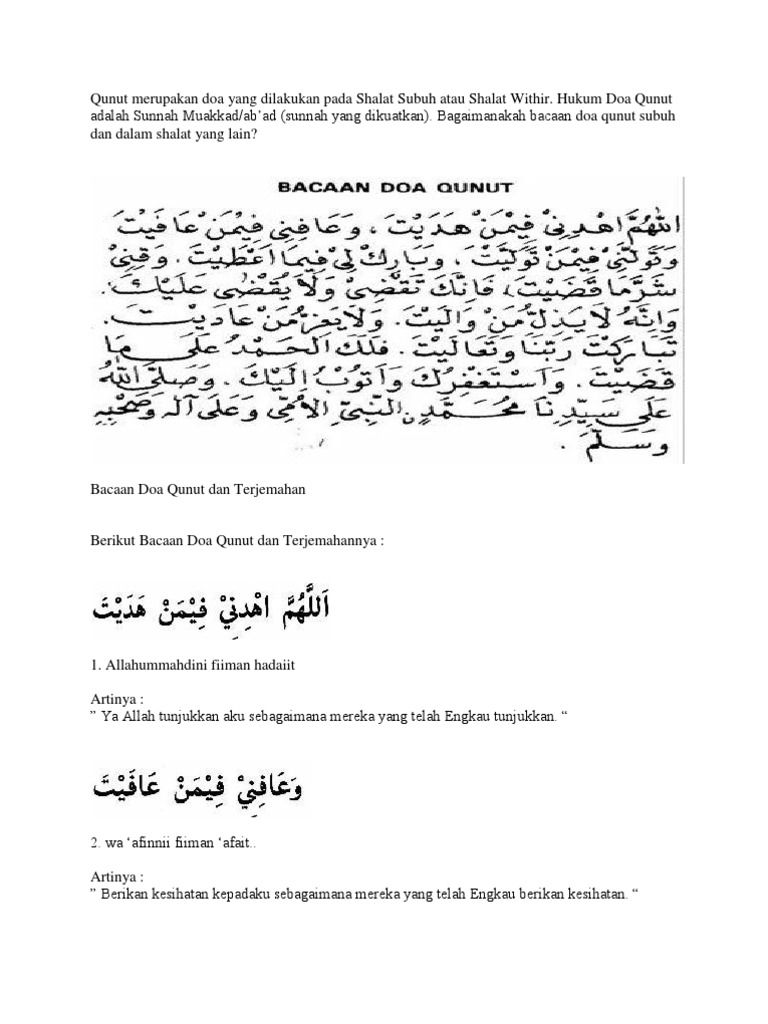 Qunut merupakan doa yang dilakukan pada Shalat Subuh atau Shalat Withir. Hukum Doa Qunut
adalah Sunnah Muakkad/ab’ad (sunnah yang dikuatkan). Bagaimanakah bacaan doa qunut subuh
dan dalam shalat yang lain?
BACAAN DOA QUNUT
اَللّٰهُمَّ اهْدِنِيْ فِيْمَنْ هَدَيْتَ ، وَعَافِنِي فِيْمَنْ عَافَيْتَ
وَتَوَلَّنِيْ فِيْمَنْ تَوَلَّيْتَ . وَبَارِكْ لِيْ فِيمَا اَعْطَيْتَ . وَقِنِيْ
شَرَّمَا قَضَيْتَ ، فَاِنَّكَ تَقْضِيْ وَلَا يُقْضٰى عَلَيْكَ .
وَاِنَّهُ لَا يَذِلُّ مَنْ وَالَيْتَ . وَلَا يَعِزُّ مَنْ عَادَيْتَ .
تَبَارَكْتَ رَبَّنَا وَتَعَالَيْتَ . فَلَكَ الْحَمْدُ عَلَى مَا
قَضَيْتَ . وَاَسْتَغْفِرُكَ وَاَتُوْبُ اِلَيْكَ . وَصَلَّى اللّٰهُ
عَلَى سَيِّدِنَا مُحَمَّدٍ النَّبِيِّ الْاُمِّيِّ وَعَلَى آلِهِ وَصَحْبِهِ
وَسَلَّمَ .
Bacaan Doa Qunut dan Terjemahan
Berikut Bacaan Doa Qunut dan Terjemahannya :
اَللَّهُمَّ اهْدِنِيْ فِيْمَنْ هَدَيْتَ
1. Allahummahdini fiiman hadaiit
Artinya :
” Ya Allah tunjukkan aku sebagaimana mereka yang telah Engkau tunjukkan. “
وَعَافِنِيْ فِيْمَنْ عَافَيْتَ
2. wa ‘afinnii fiiman ‘afait..
Artinya :
” Berikan kesihatan kepadaku sebagaimana mereka yang telah Engkau berikan kesihatan. “